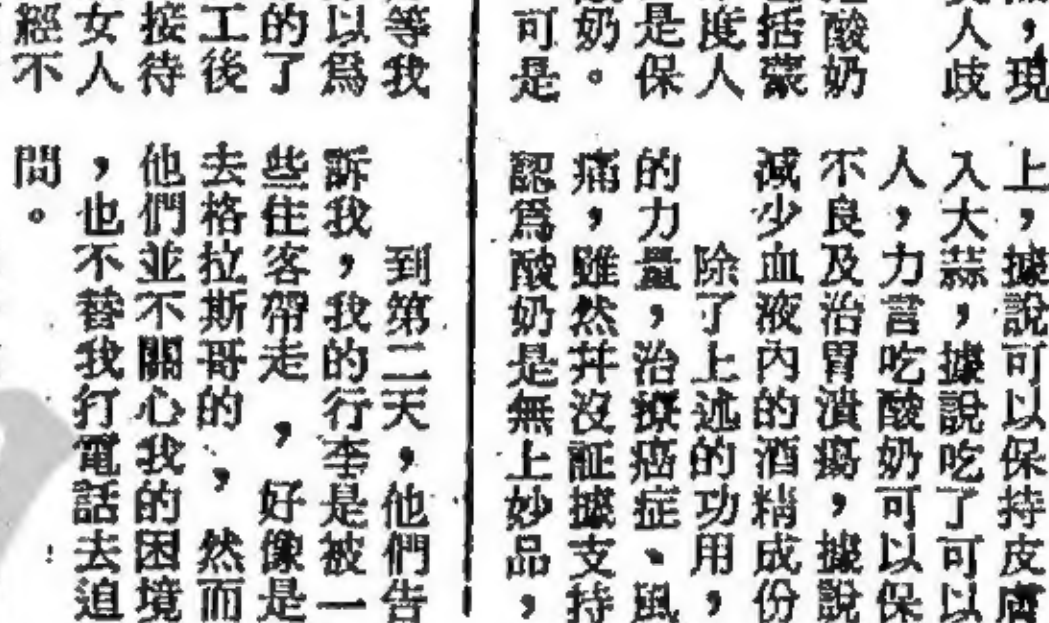 ，現
人歧
酸奶
括蒙
度人
是保
奶。
可是
上，據說可以保持皮膚
入大蒜，據說吃了可以
人，力言吃酸奶可以保
不良及治胃潰瘍，據說
減少血液內的酒精成份
除了上述的功用，
的力量，治療癌症、風
痛，雖然幷沒証據支持
認爲酸奶是無上妙品，
等我
以爲
的了
工後
接待
女人
經不
到第二天，他們告
訴我，我的行李是被一
些住客帶走，好像是
去格拉斯哥的，然而
他們並不關心我的困境
，也不替我打電話去追
問。